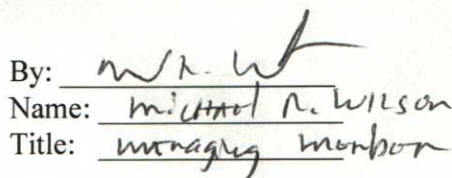 By:
Name: Michael R. Wilson
Title: Managing Member